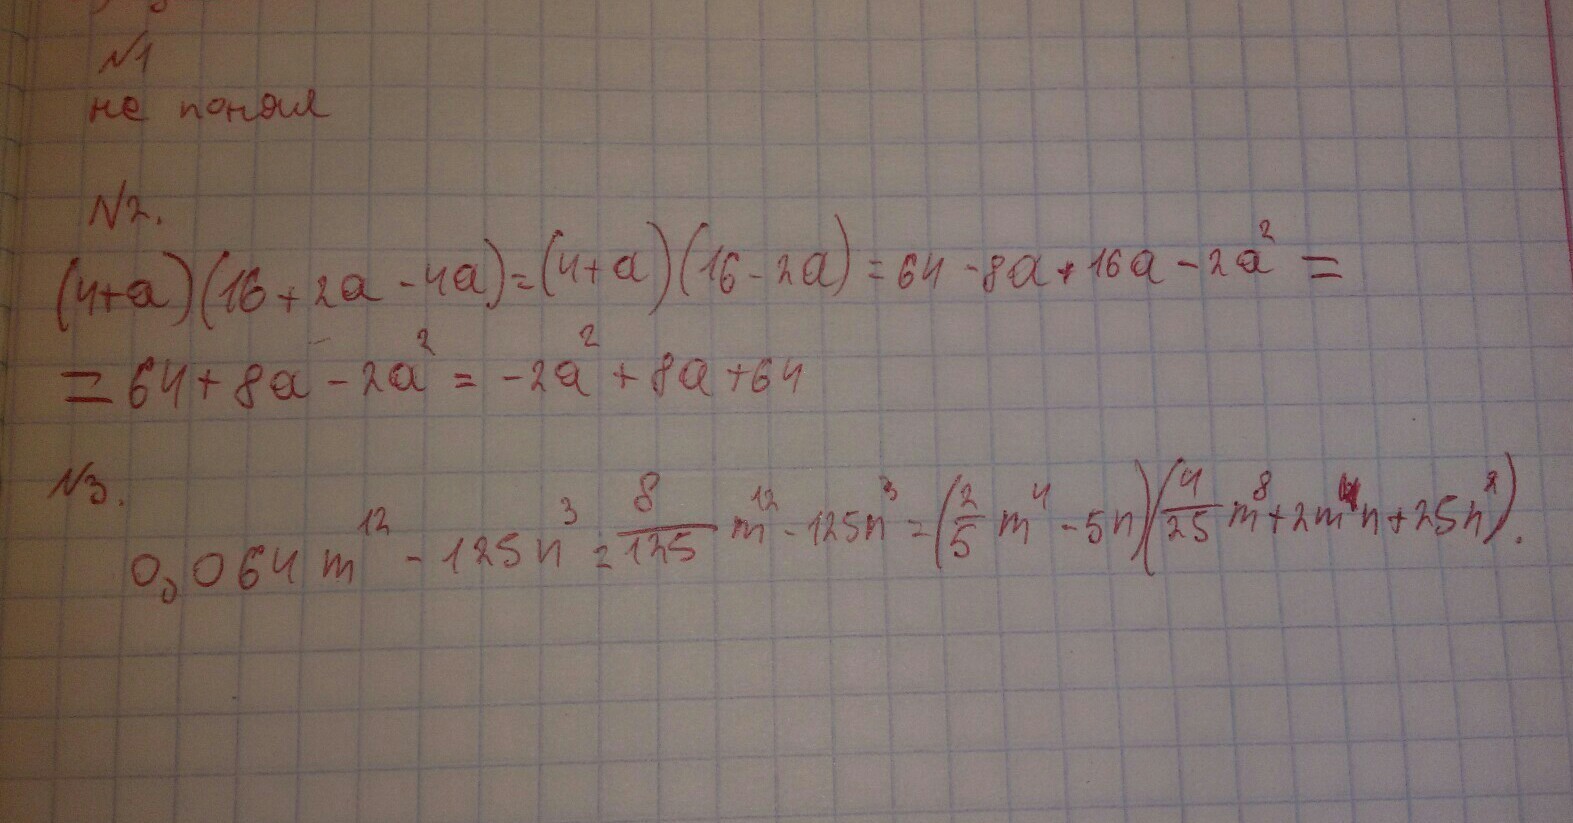 №1
не понял
№2.
(4+a)(16+2a-4a)=(4+a)(16-2a)=64-8a+16a-2a²=
=64+8a-2a²=-2a²+8a+64
№3.
0,064m¹²-125n³=8/125 m¹²-125n³=(2/5 m⁴-5n)(4/25 m⁸+2m⁴n+25n²).